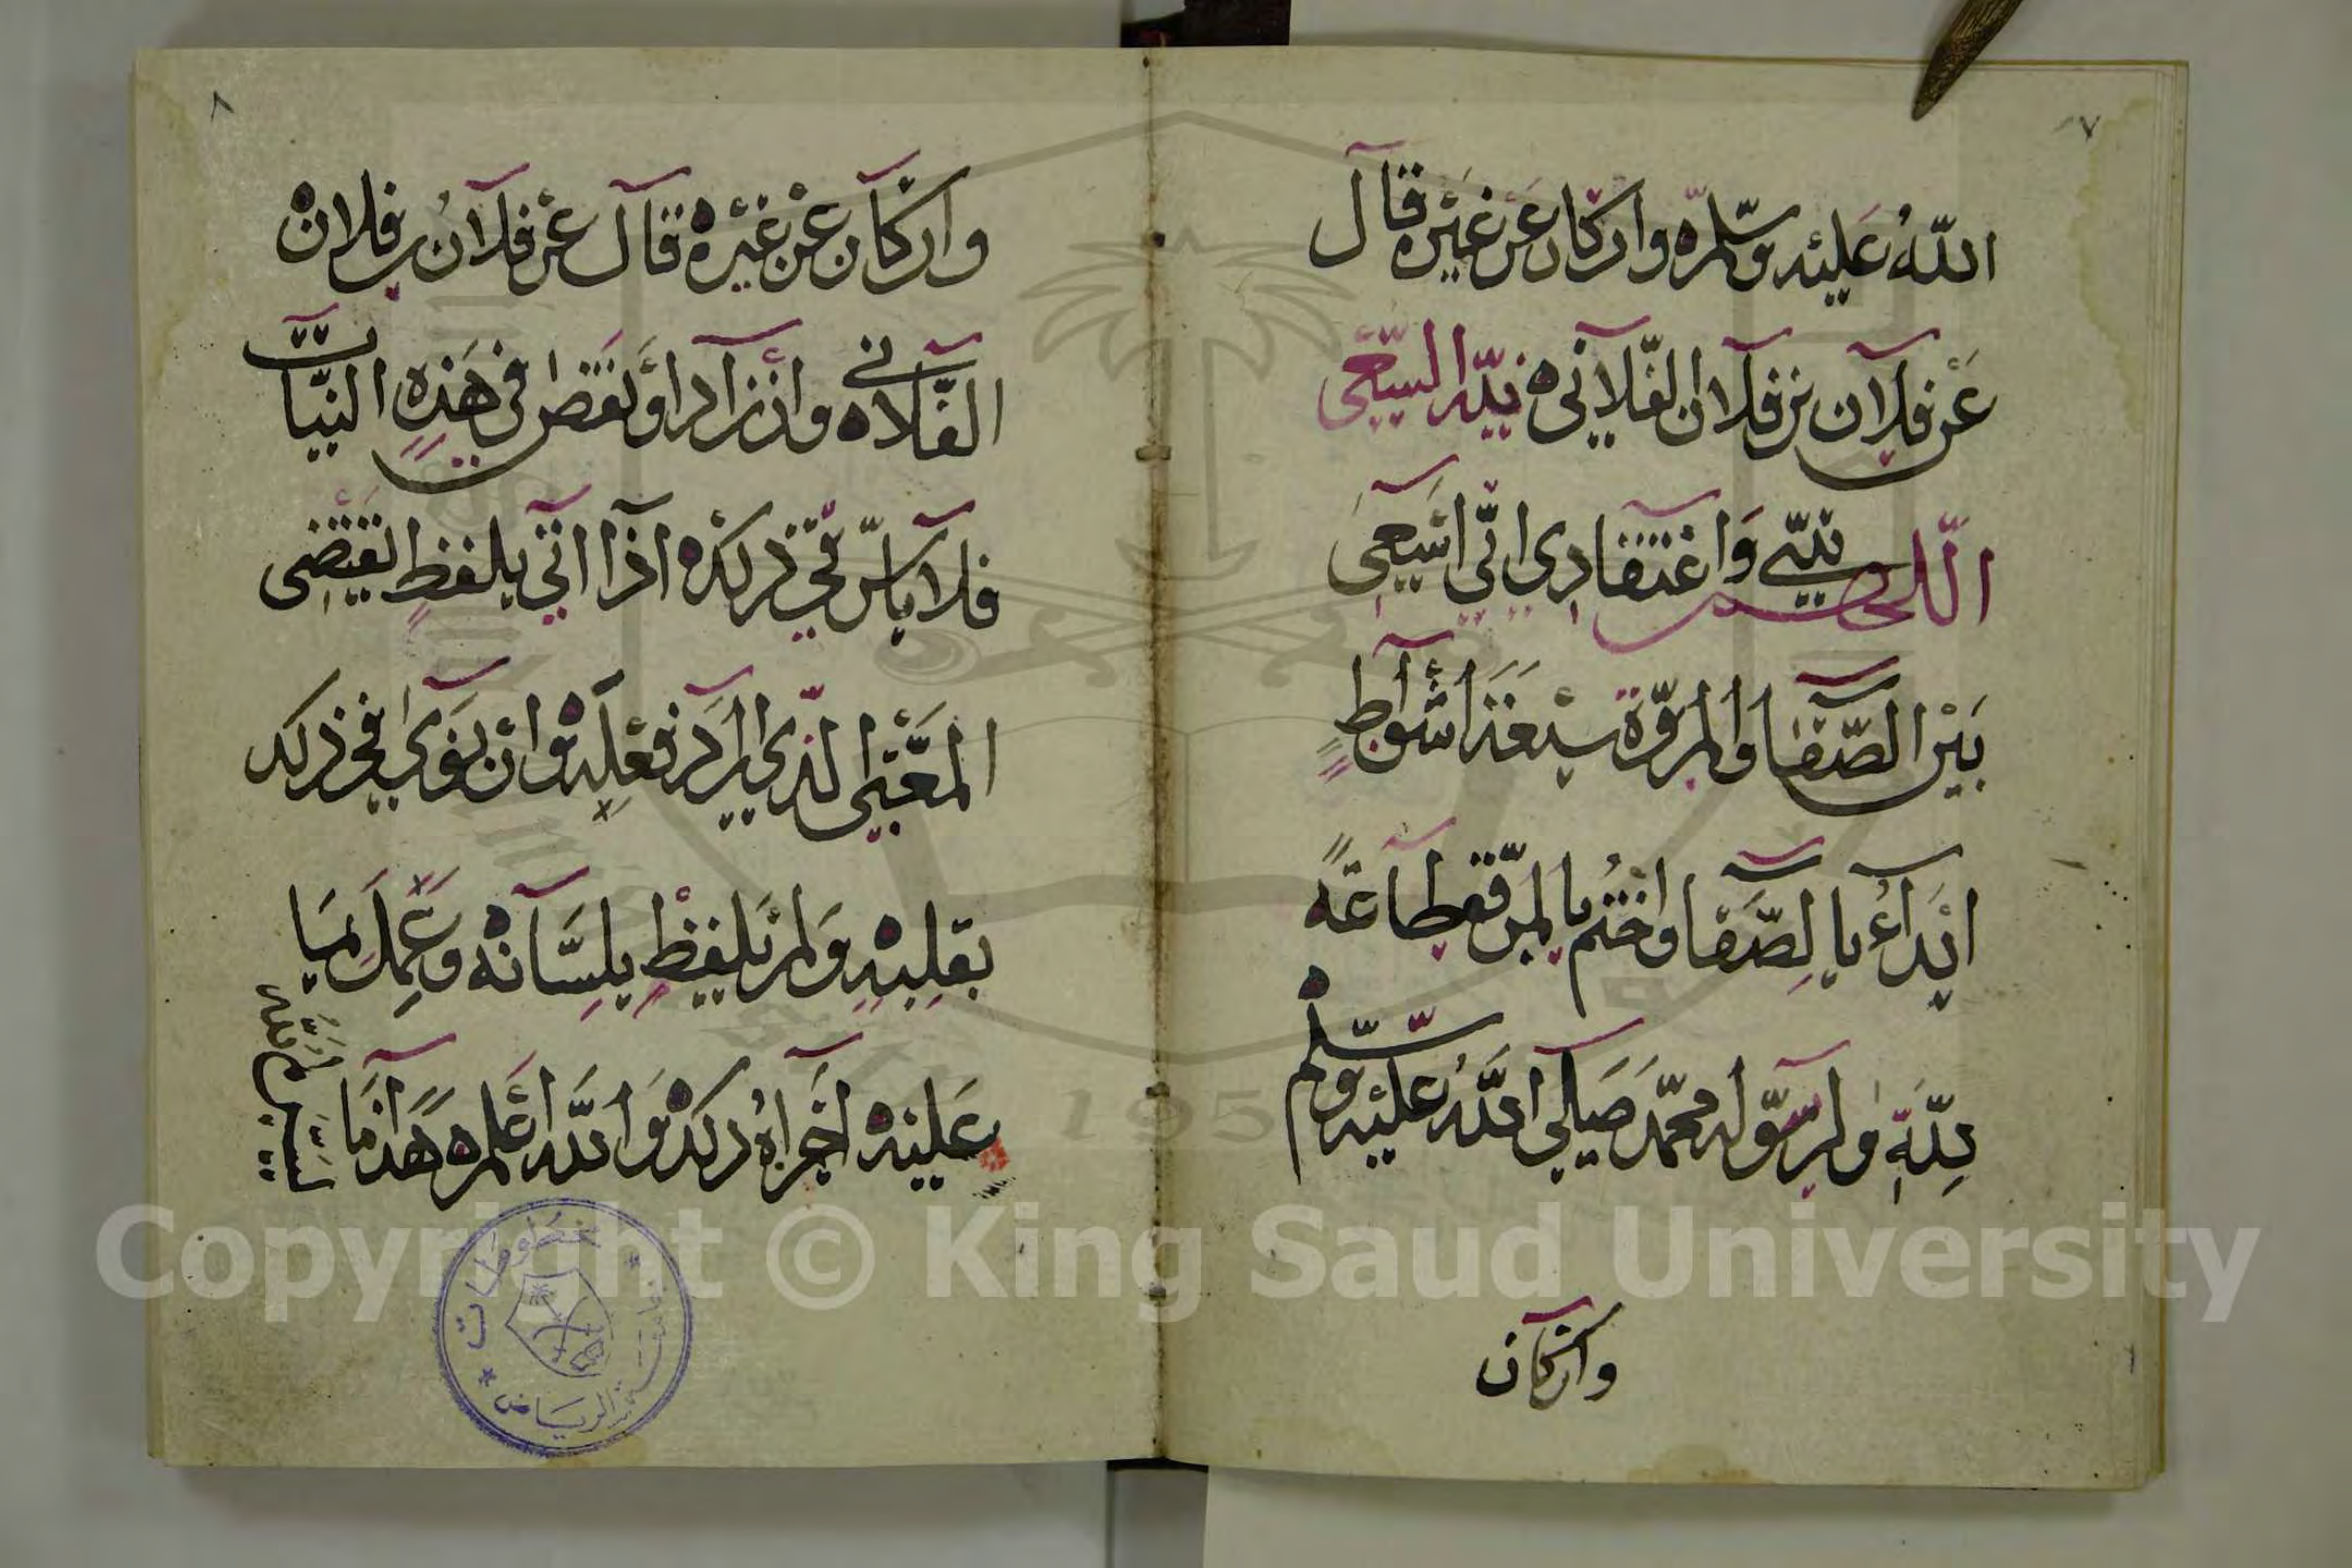 ٧
الله عليه وسلم ه وان كان عن غيره قال
عن فلان بن فلان الفلاني ه نية السعي
اللهم نيتي واعتقادي اني اسعى
بين الصفا والمروة سبعة اشواط
ابداء بالصفا واختم بالمروة طاعة
لله ولرسوله محمد صلى الله عليه وسلم ه
وان كان
٨
وان كان عن غيره قال عن فلان بن فلان
الفلاني ه وان زاد او نقص في هذه النيات
فلا باس في ذلك ه اذا اتى بلفظ يقتضي
المعنى الذي يريد فعله ه وان نوى في ذلك
بقلبه ولم يلفظ بلسانه وعمل بما
عليه اجزاه ذلك ه والله اعلم ه هذا ما
مخطوطات
الرياض
Copyright © King Saud University
195